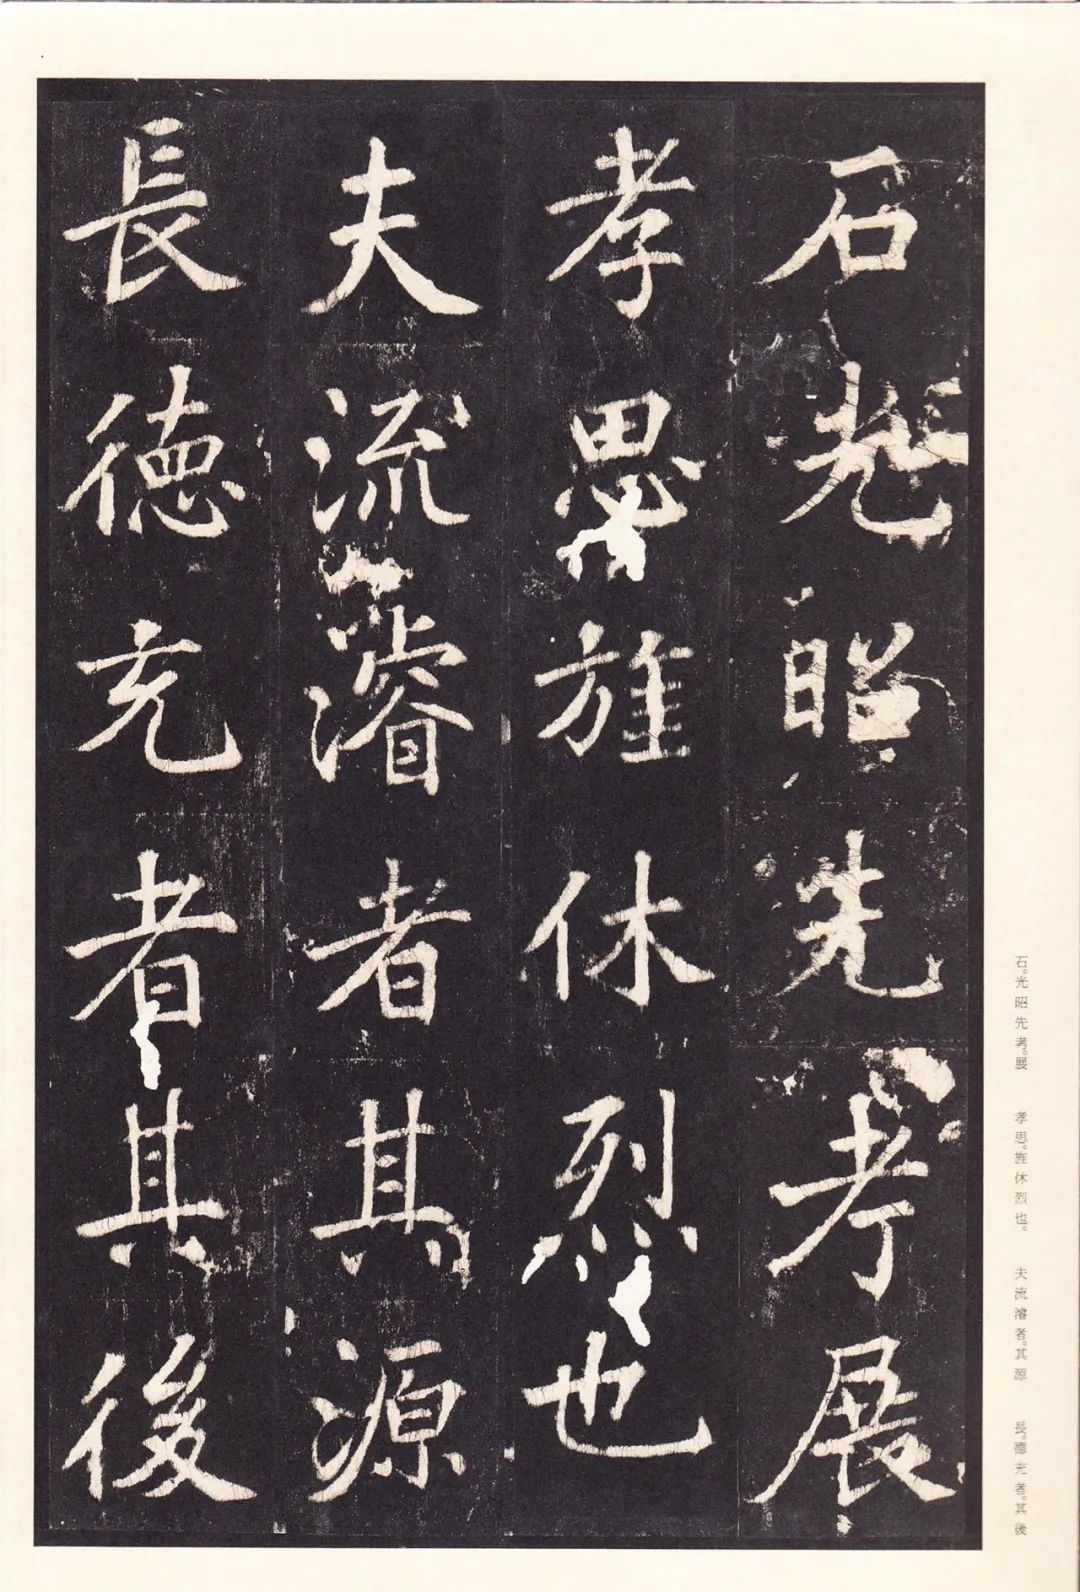 石光昭先考展
孝思旌休烈也
夫流濬者其源
長德充者其後
石。光昭先考。展　孝思。旌休烈也。　夫流濬者。其源　長。德充者。其後